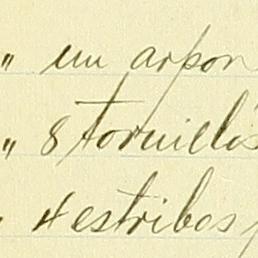 " un arpon
" 8 tornillos
" 4 estribos